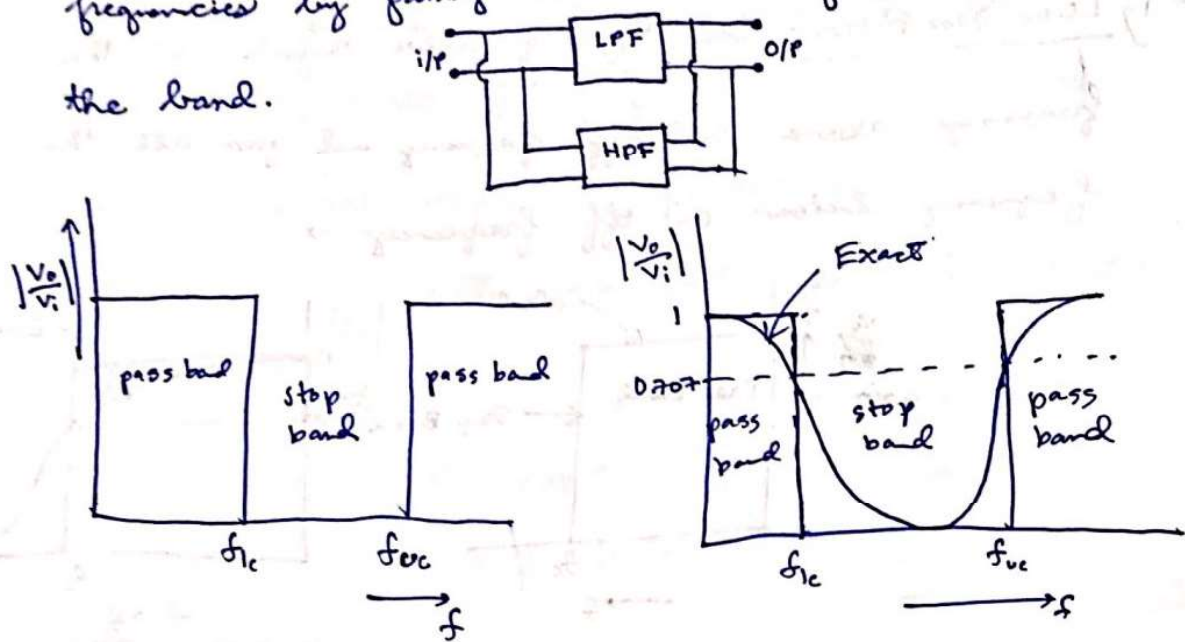 frequencies by
LPF
i/p
O/P
the band.
HPF
|Vo/Vi|
pass bad
stop
band
pass band
flc
fuc
f
|Vo/Vi|
Exact
1
0.707
pass
band
stop
band
pass
band
flc
fuc
f